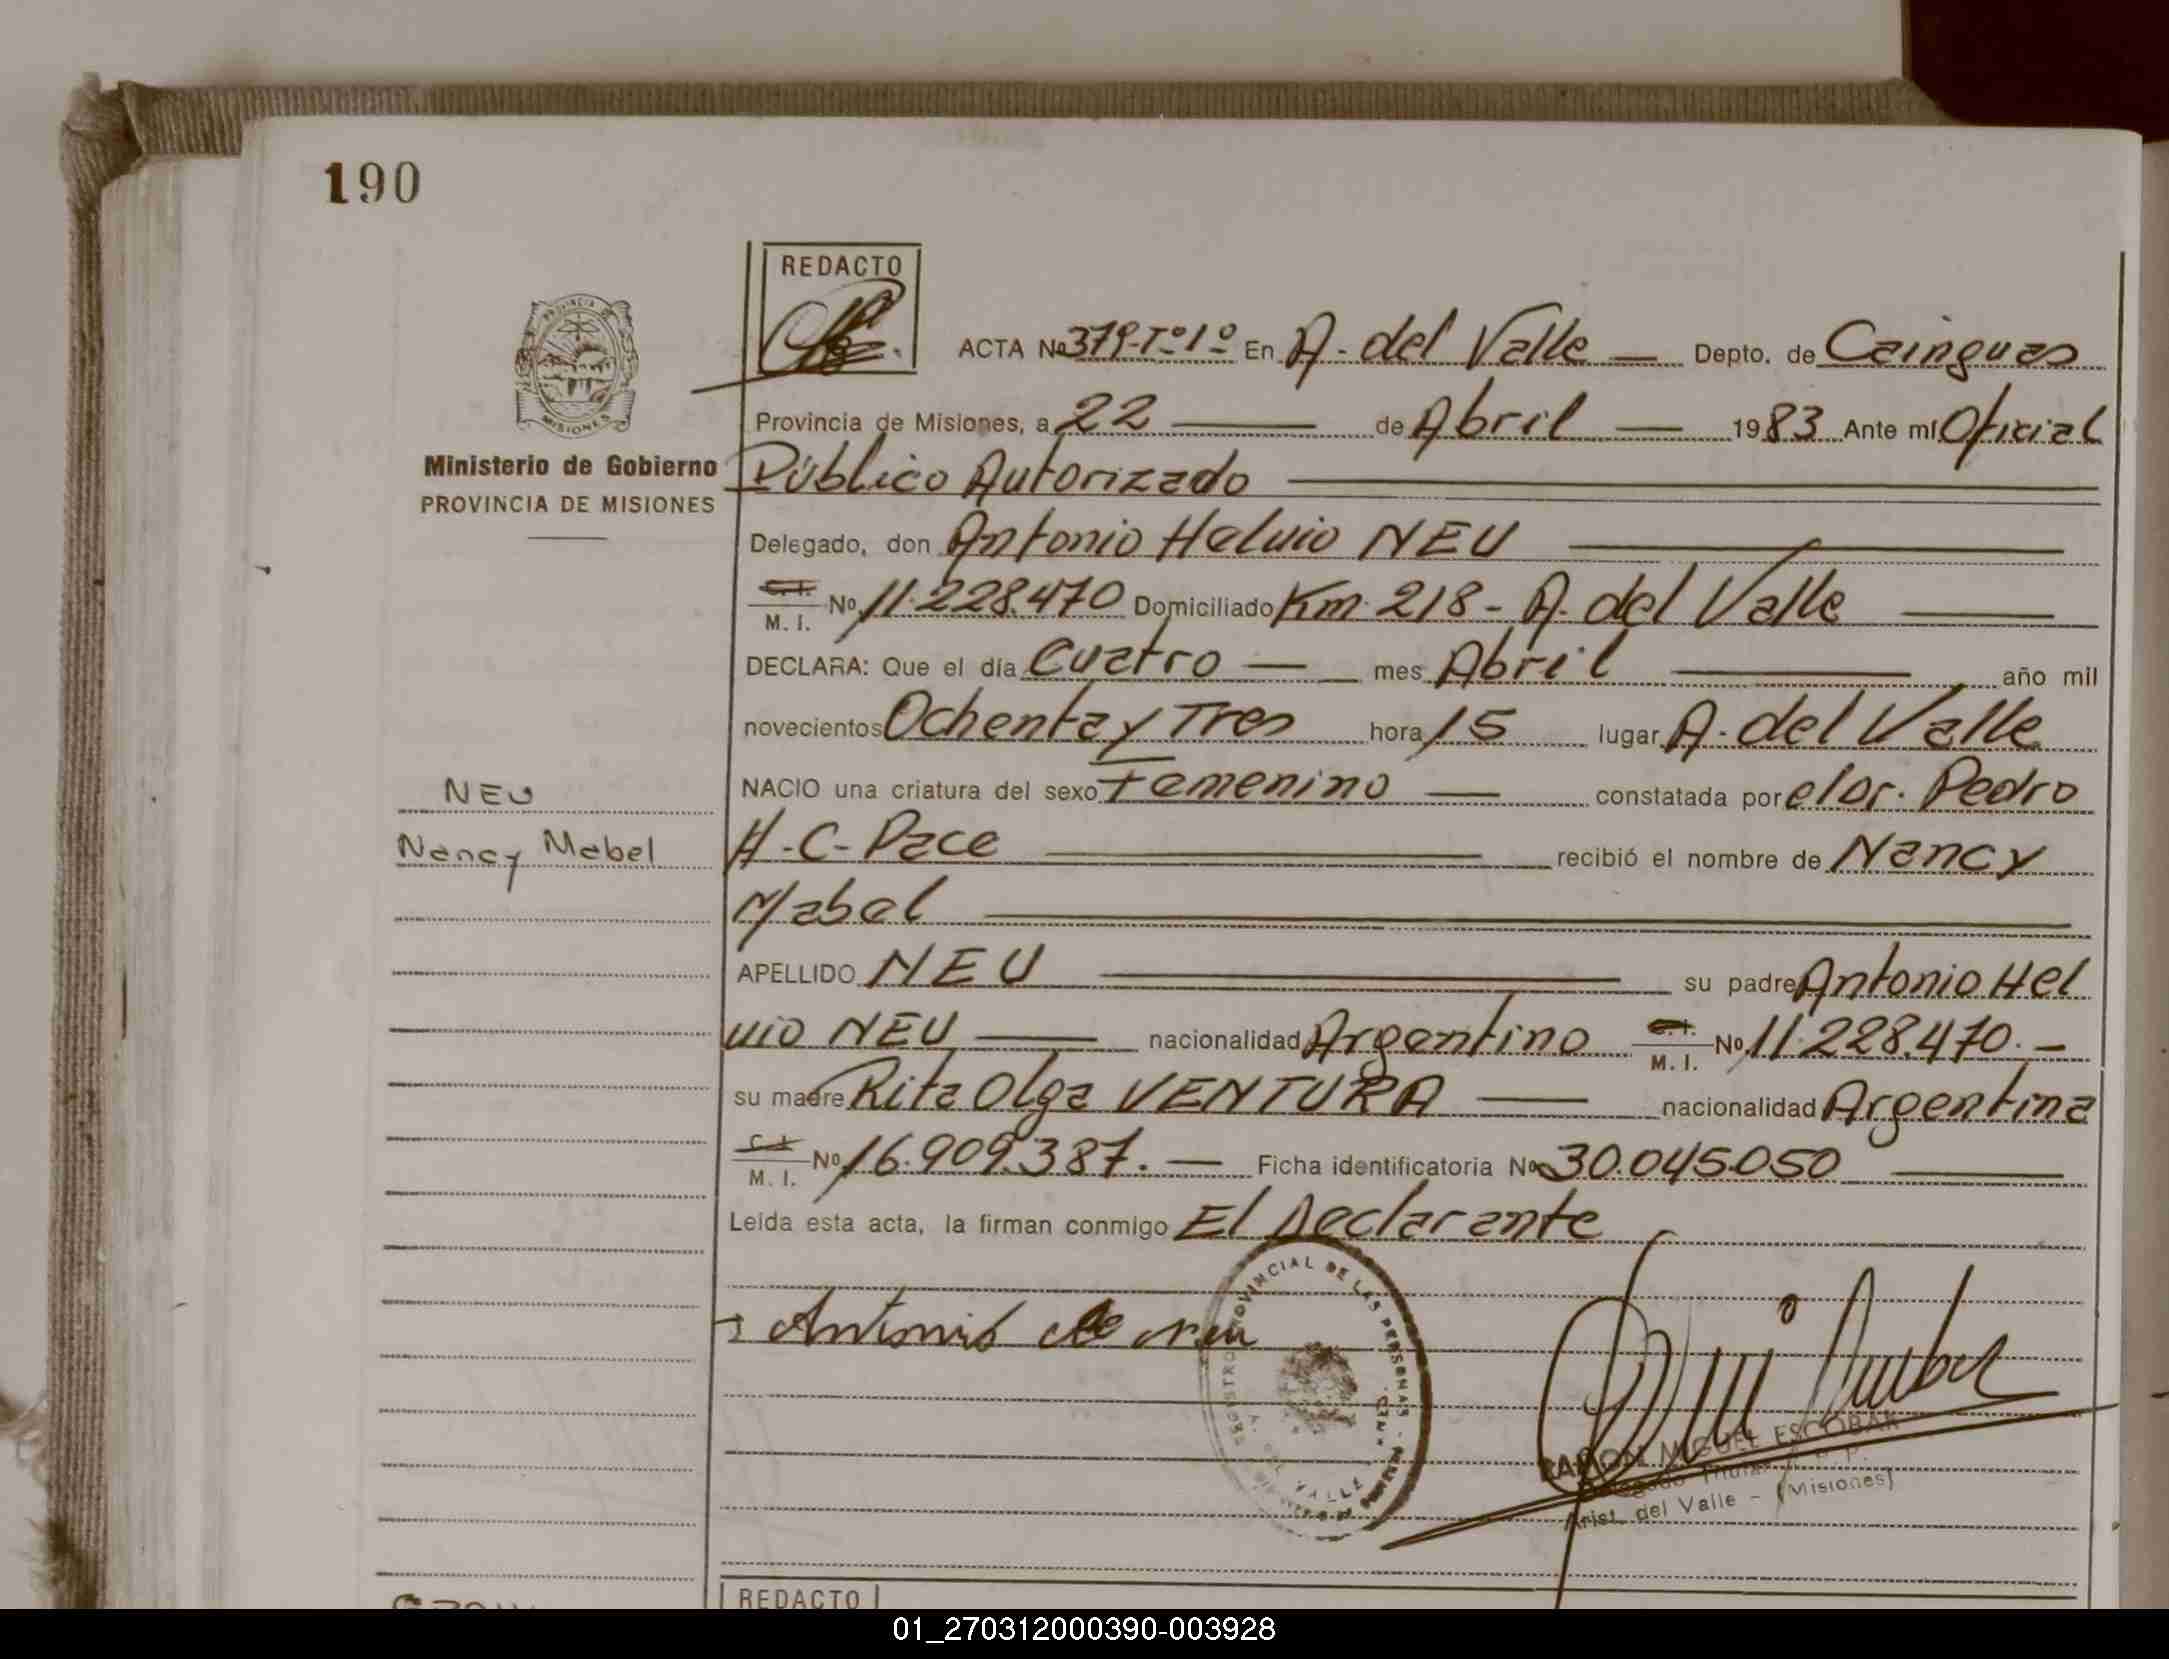 190
REDACTO
PROVINCIA DE
MISIONES
Ministerio de Gobierno
PROVINCIA DE MISIONES
ACTA No 379-Tº1º En A. del Valle Depto. de Cainguas
Provincia de Misiones, a 22 de Abril 1983 Ante mí Oficial
Público Autorizado
Delegado, don Antonio Helvio NEU
C. I. M. I. No 11.228.470 Domiciliado Km. 218 - A. del Valle
DECLARA: Que el día Cuatro mes Abril año mil
novecientos Ochenta y Tres hora 15 lugar A. del Valle
NACIO una criatura del sexo Femenino constatada por el Dr. Pedro
H.-C- Pace recibió el nombre de Nancy
Mabel
NEU
Nancy Mabel
APELLIDO NEU su padre Antonio Hel
vio NEU nacionalidad Argentino C. I. M. I. No 11.228.470.-
su madre Rita Olga VENTURA nacionalidad Argentina
C. I. M. I. No 16.909.387.- Ficha identificatoria No 30.045.050
Leída esta acta, la firman conmigo El Declarante
Antonio Neu
PROVINCIAL DE LAS PERSONAS
RAMON MIGUEL ESCOBAR
Arist. del Valle - (Misiones)
REDACTO
01_270312000390-003928